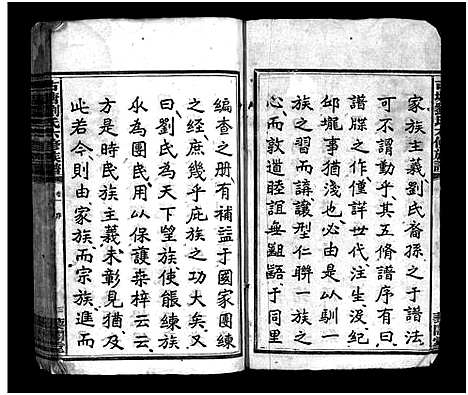 家族主義劉氏裔孫之于譜法
可不謂勤乎其五修譜序有曰
譜牒之作僅詳世代注生没紀
邱壠事猶淺也必由是以馴一
族之習而講讓型仁聯一族之
心而敦道睦誼無齟齬于同里
編查之册有補益于國家團練
之經庶幾乎庇族之功大矣又
曰劉氏為天下望族使能練族
衆為團民用以保護桑梓云云
方是時民族主義未彰見猶及
此若今則由家族而宗族進而
劉氏六修族譜